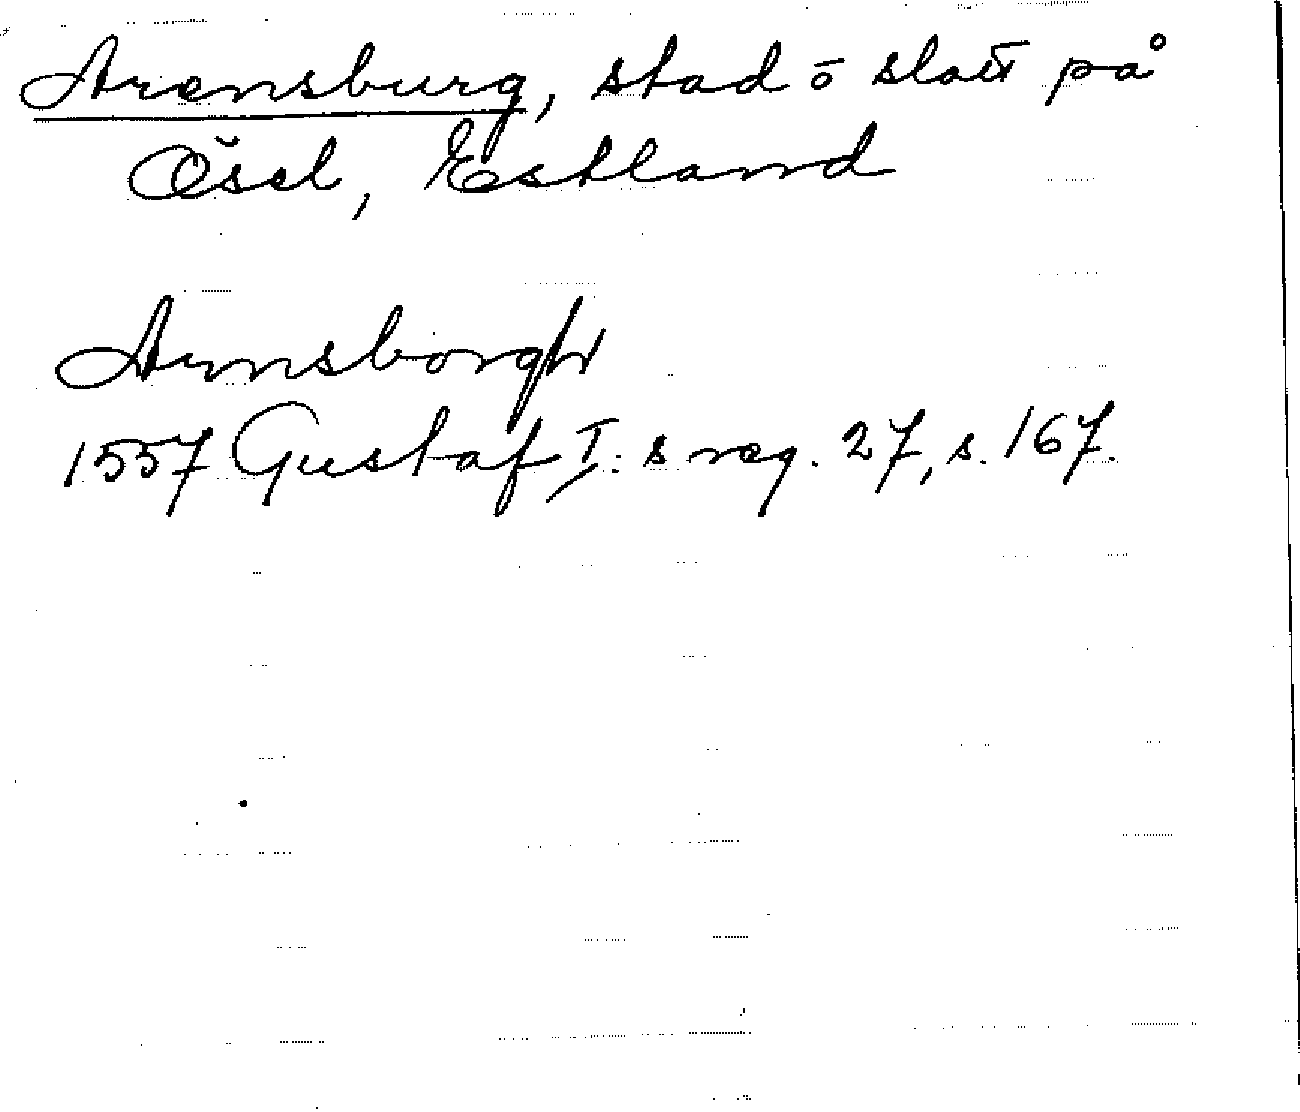 Arensburg, stad o slott på
Ösel, Estland
Arnsborgh
1557 Gustaf I:s reg. 27, s. 167.